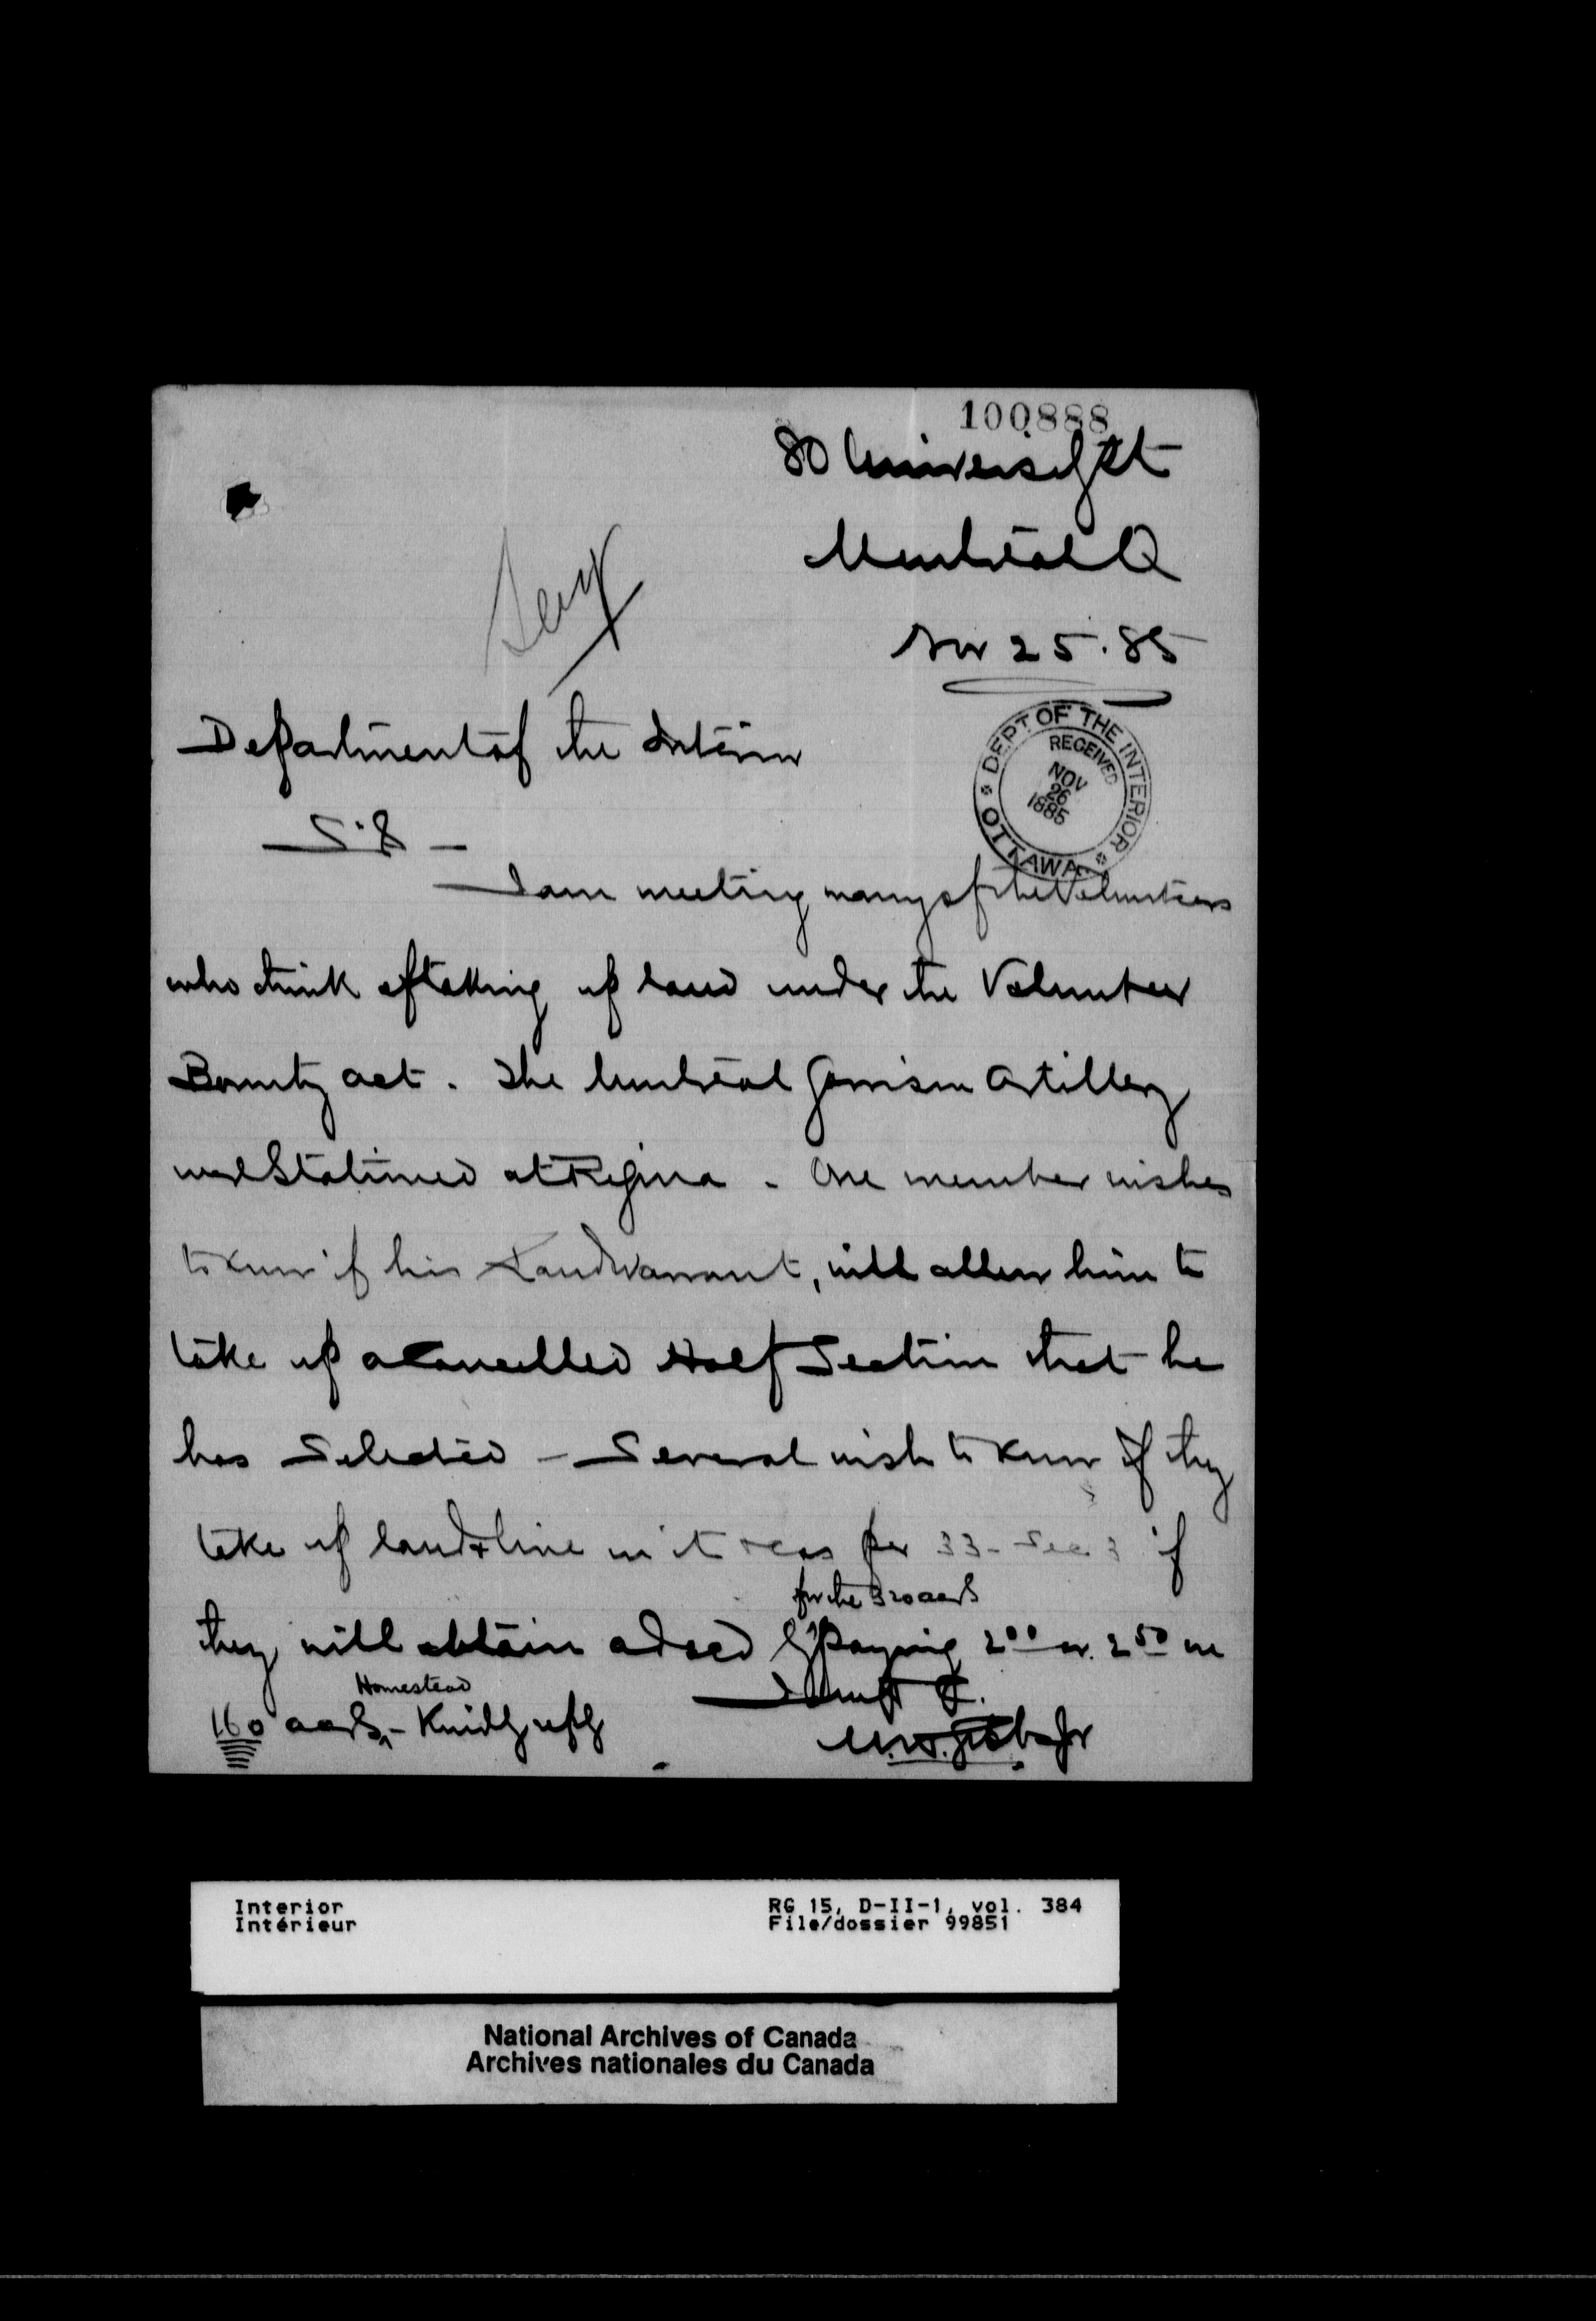 100888
80 University St
Montreal Q
Nov 25. 85
Department of the Interior
DEPT OF THE INTERIOR
RECEIVED
NOV
26
1885
OTTAWA
Sir -
I am meeting many of the Volunteers
who think of taking up land under the Volunteer
Bounty act. The Montreal Garrison Artillery
were Stationed at Regina - One member wishes
to know if his Land Warrant, will allow him to
take up a Cancelled Half Section that he
has Selected - Several wish to know if they
take up land & live on it as per 33 - Sec 3 if
for the 320 acres
they will obtain a deed by paying 2 00 or 2 50 on
Homestead
160 acres, - Kindly reply
Interior
Intérieur
RG 15, D-II-1, vol. 384
File/dossier 99851
National Archives of Canada
Archives nationales du Canada